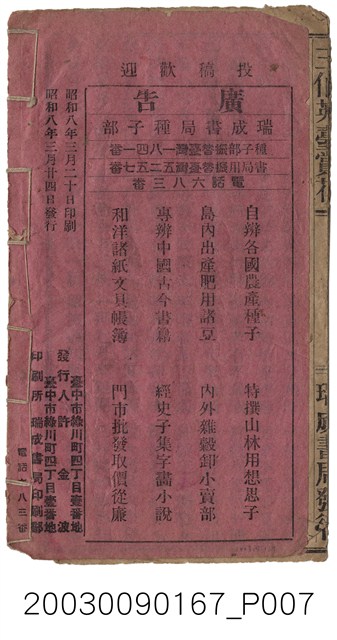 投稿歡迎
廣告
瑞成書局種子部
種子部振替臺灣一八四一番
書局用振替臺灣五二五七番
電話六八三番
自辦各國農產種子　特撰山林用想思子
島內出產肥用諸豆　內外雜穀卸小賣部
專辦中國古今書籍　經史子集字畫小說
和洋諸紙文具帳簿　門市批發取價從廉
昭和八年三月二十日印刷
昭和八年三月廿四日發行
臺中市綠川町四丁目壹番地
發行人　許金波
臺中市綠川町四丁目壹番地
印刷所　瑞成書局印刷部
電話六八三番
20030090167_P007